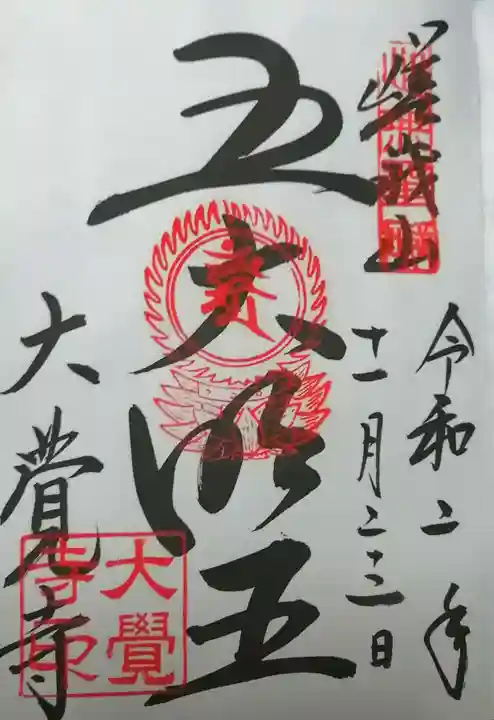 嵯峨山
令和二年
十一月二三日
五大明王
大覺寺
大覺寺印